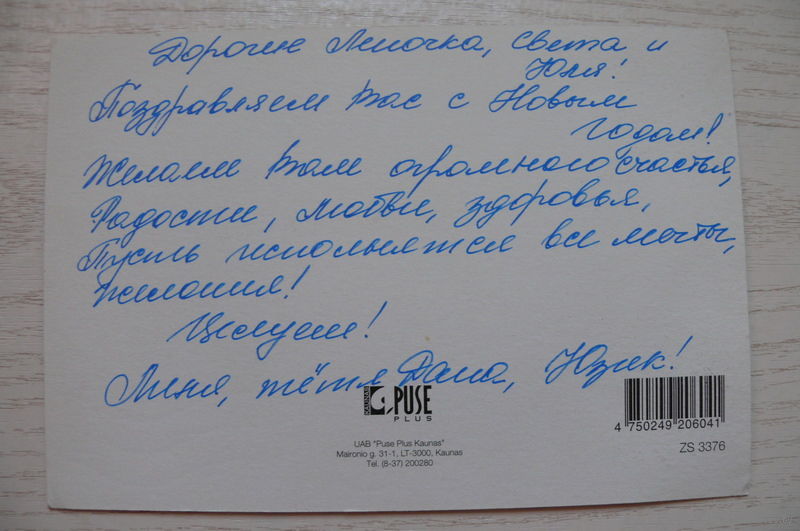 Дорогие Леночка, Света и
Юля!
Поздравляем Вас с Новым
годом!
Желаем Вам огромного счастья,
Радости, любви, здоровья,
Пусть исполнятся все мечты,
желания!
Целуем!
Лиля, тётя Дана, Юзик!
KAUNAS PUSE
PLUS
UAB "Puse Plus Kaunas"
Maironio g. 31-1, LT-3000, Kaunas
Tel. (8-37) 200280
4 750249 206041
ZS 3376